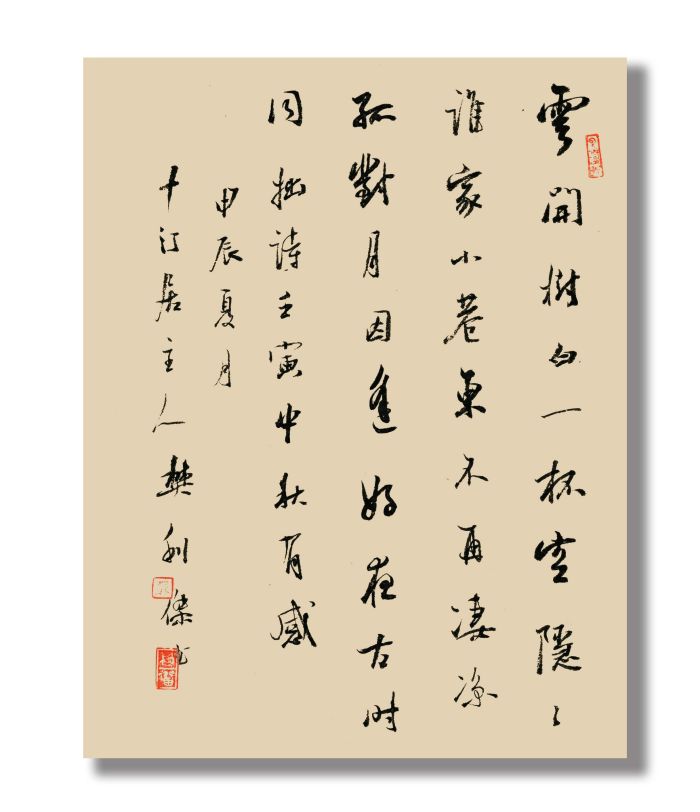 雲開樹白一杯空隱〻
誰家小巷東不再凄凉
孤對月因逢好夜古时
同拙詩壬寅中秋有感
甲辰夏月
十汀居主人樊利傑书